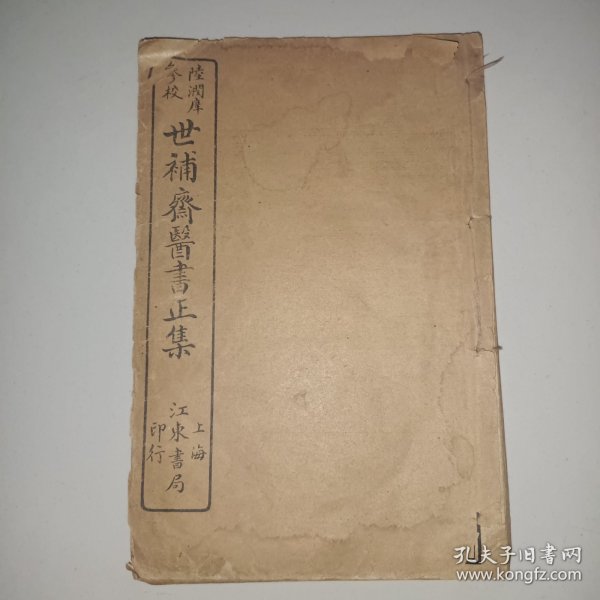 陸潤庠
參校
世補齋醫書正集
上海
江東書局
印行
孔夫子旧書网
www.kongfz.com